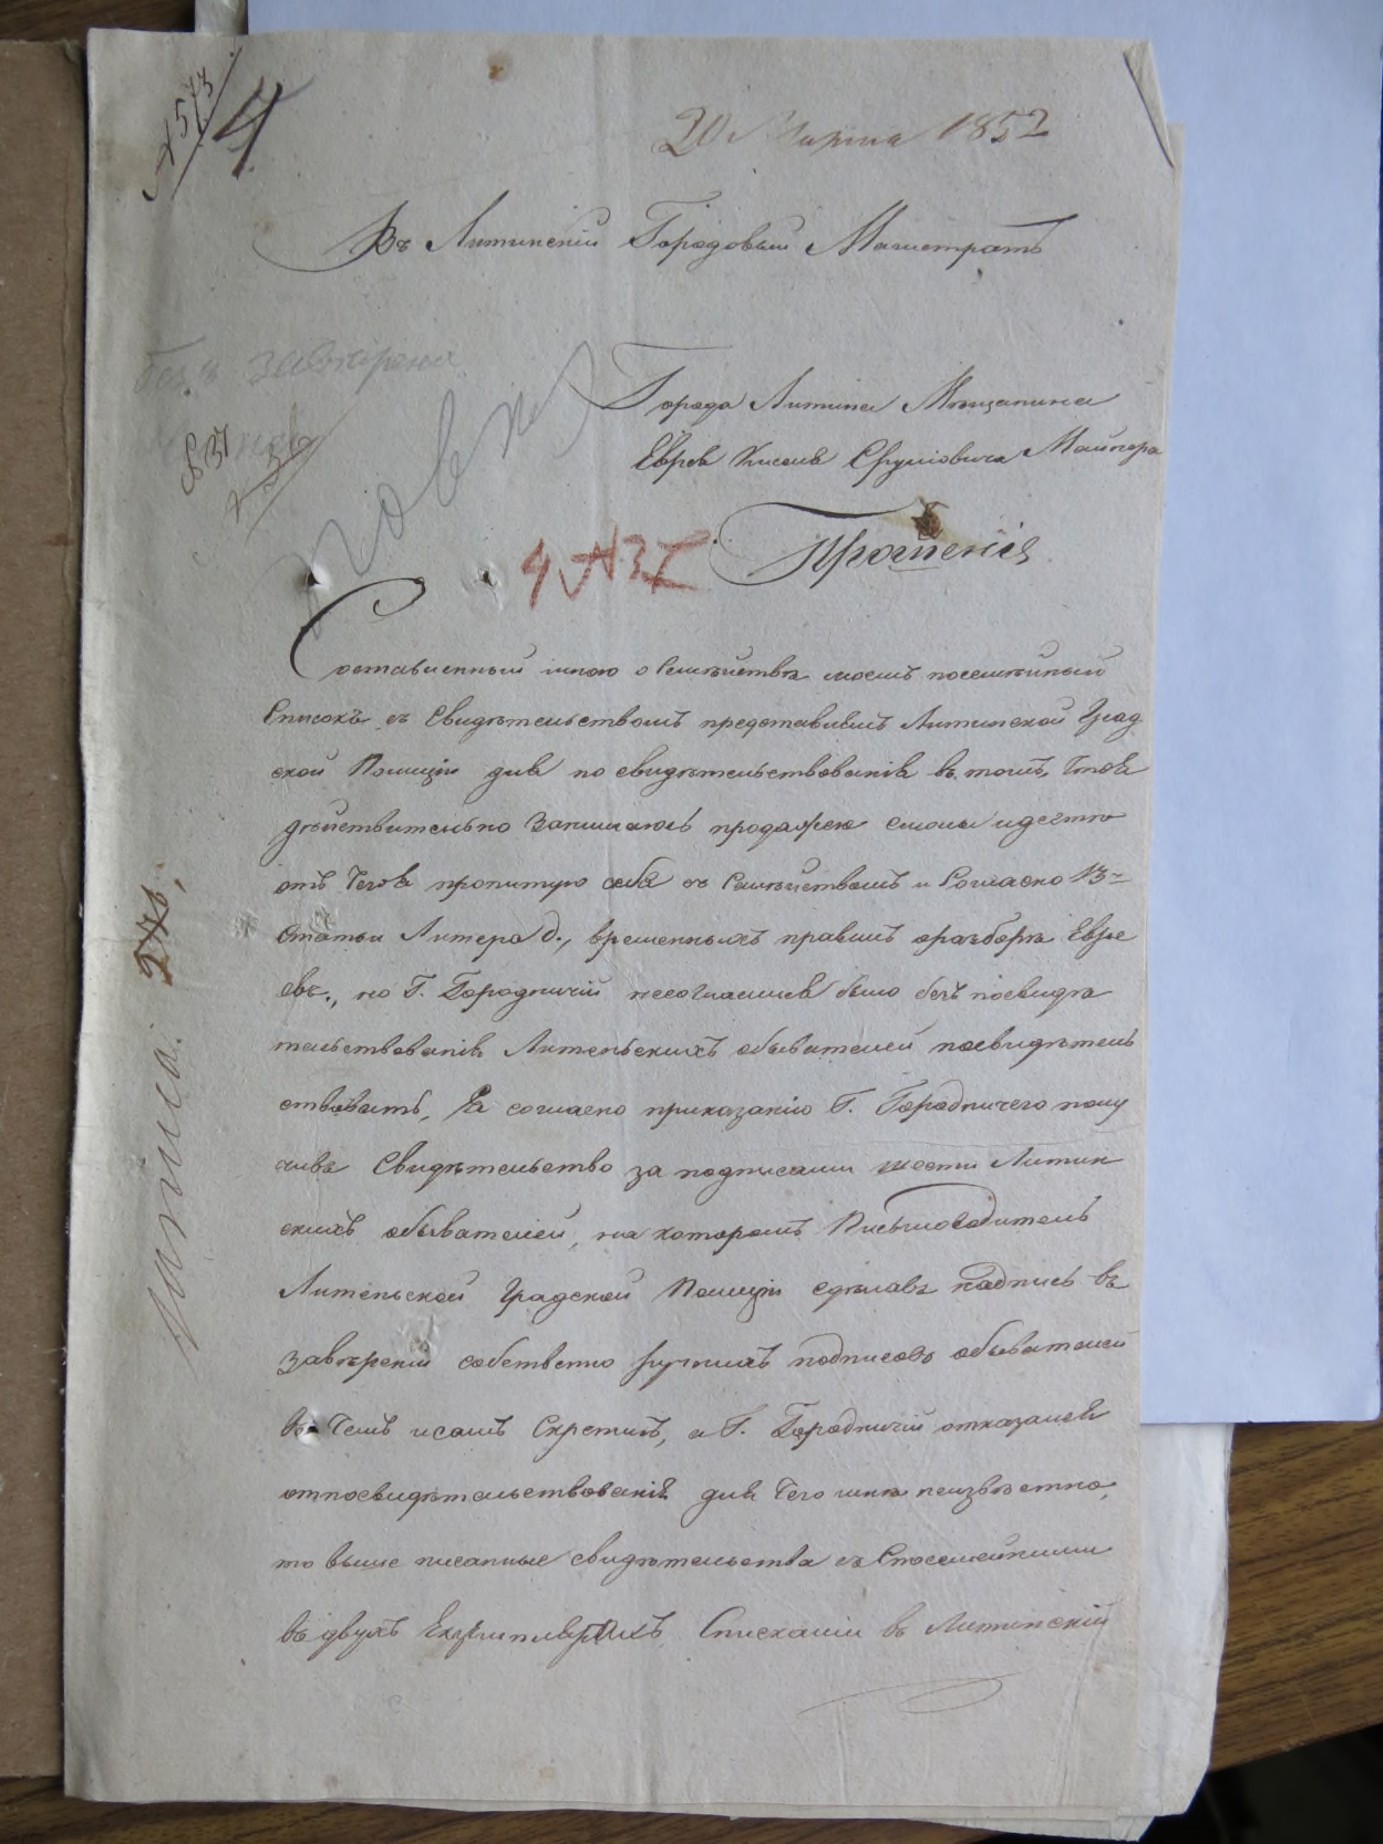 № 573
4
20 Марта 1852
Въ Литинскій Городовый Магистратъ
Города Литина Мѣщанина
Еврея Кисиля Сруліовича Майтера
Прошеніе
Составленный мною о Семѣйствѣ моемъ посемѣйный
Списокъ съ Свидѣтельствомъ представилъ Литинской Град
ской Полиціи для по свидѣтельствованія въ томъ, что я
дѣйствительно занимаюсь продажею смолы и дегтю
отъ чего я пропитую себя съ Семѣйствомъ и Согласно 13й
Статьи Литера д., временныхъ правилъ о разборѣ Евре
евъ., но Г. Городничій несогласился было безъ посвидѣ
тельствованія Литенскихъ обывателей посвидѣтель
ствовать, Я согласно приказанію Г. Городничего полу
чивъ Свидѣтельство за подписами шести Литин
скихъ обывателей, на которомъ Письмоводитель
Литенской Градской Полиціи сдѣлавъ надпись въ
завѣреніи собственно ручныхъ подписовъ обывателей
въ чемъ и самъ Скрепилъ, а Г. Городничій отказался
отпосвидѣтельствованія для чего мнѣ неизвѣстно,
то выше писанные свидѣтельства съ Спосемейними
въ двухъ Екземплярахъ Списками въ Литинскій